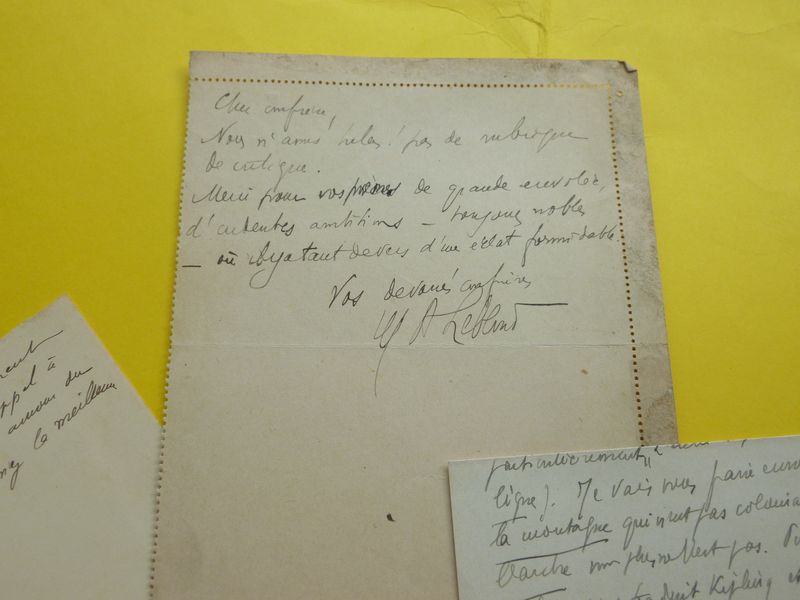 Cher confrère,
Nous n'avons hélas! pas de rubrique
de critique.
Merci pour vos poèmes de grande envolée,
d'ardentes ambitions — toujours nobles
— où il y a tant de vers d'un éclat formidable.
Vos dévoués confrères
M A Leblond
appel à
amour du
le meilleur
particulièrement
ligne). Je vais vous faire
la montagne qui n'est pas
non plus ne l'est pas.
traduit Kipling